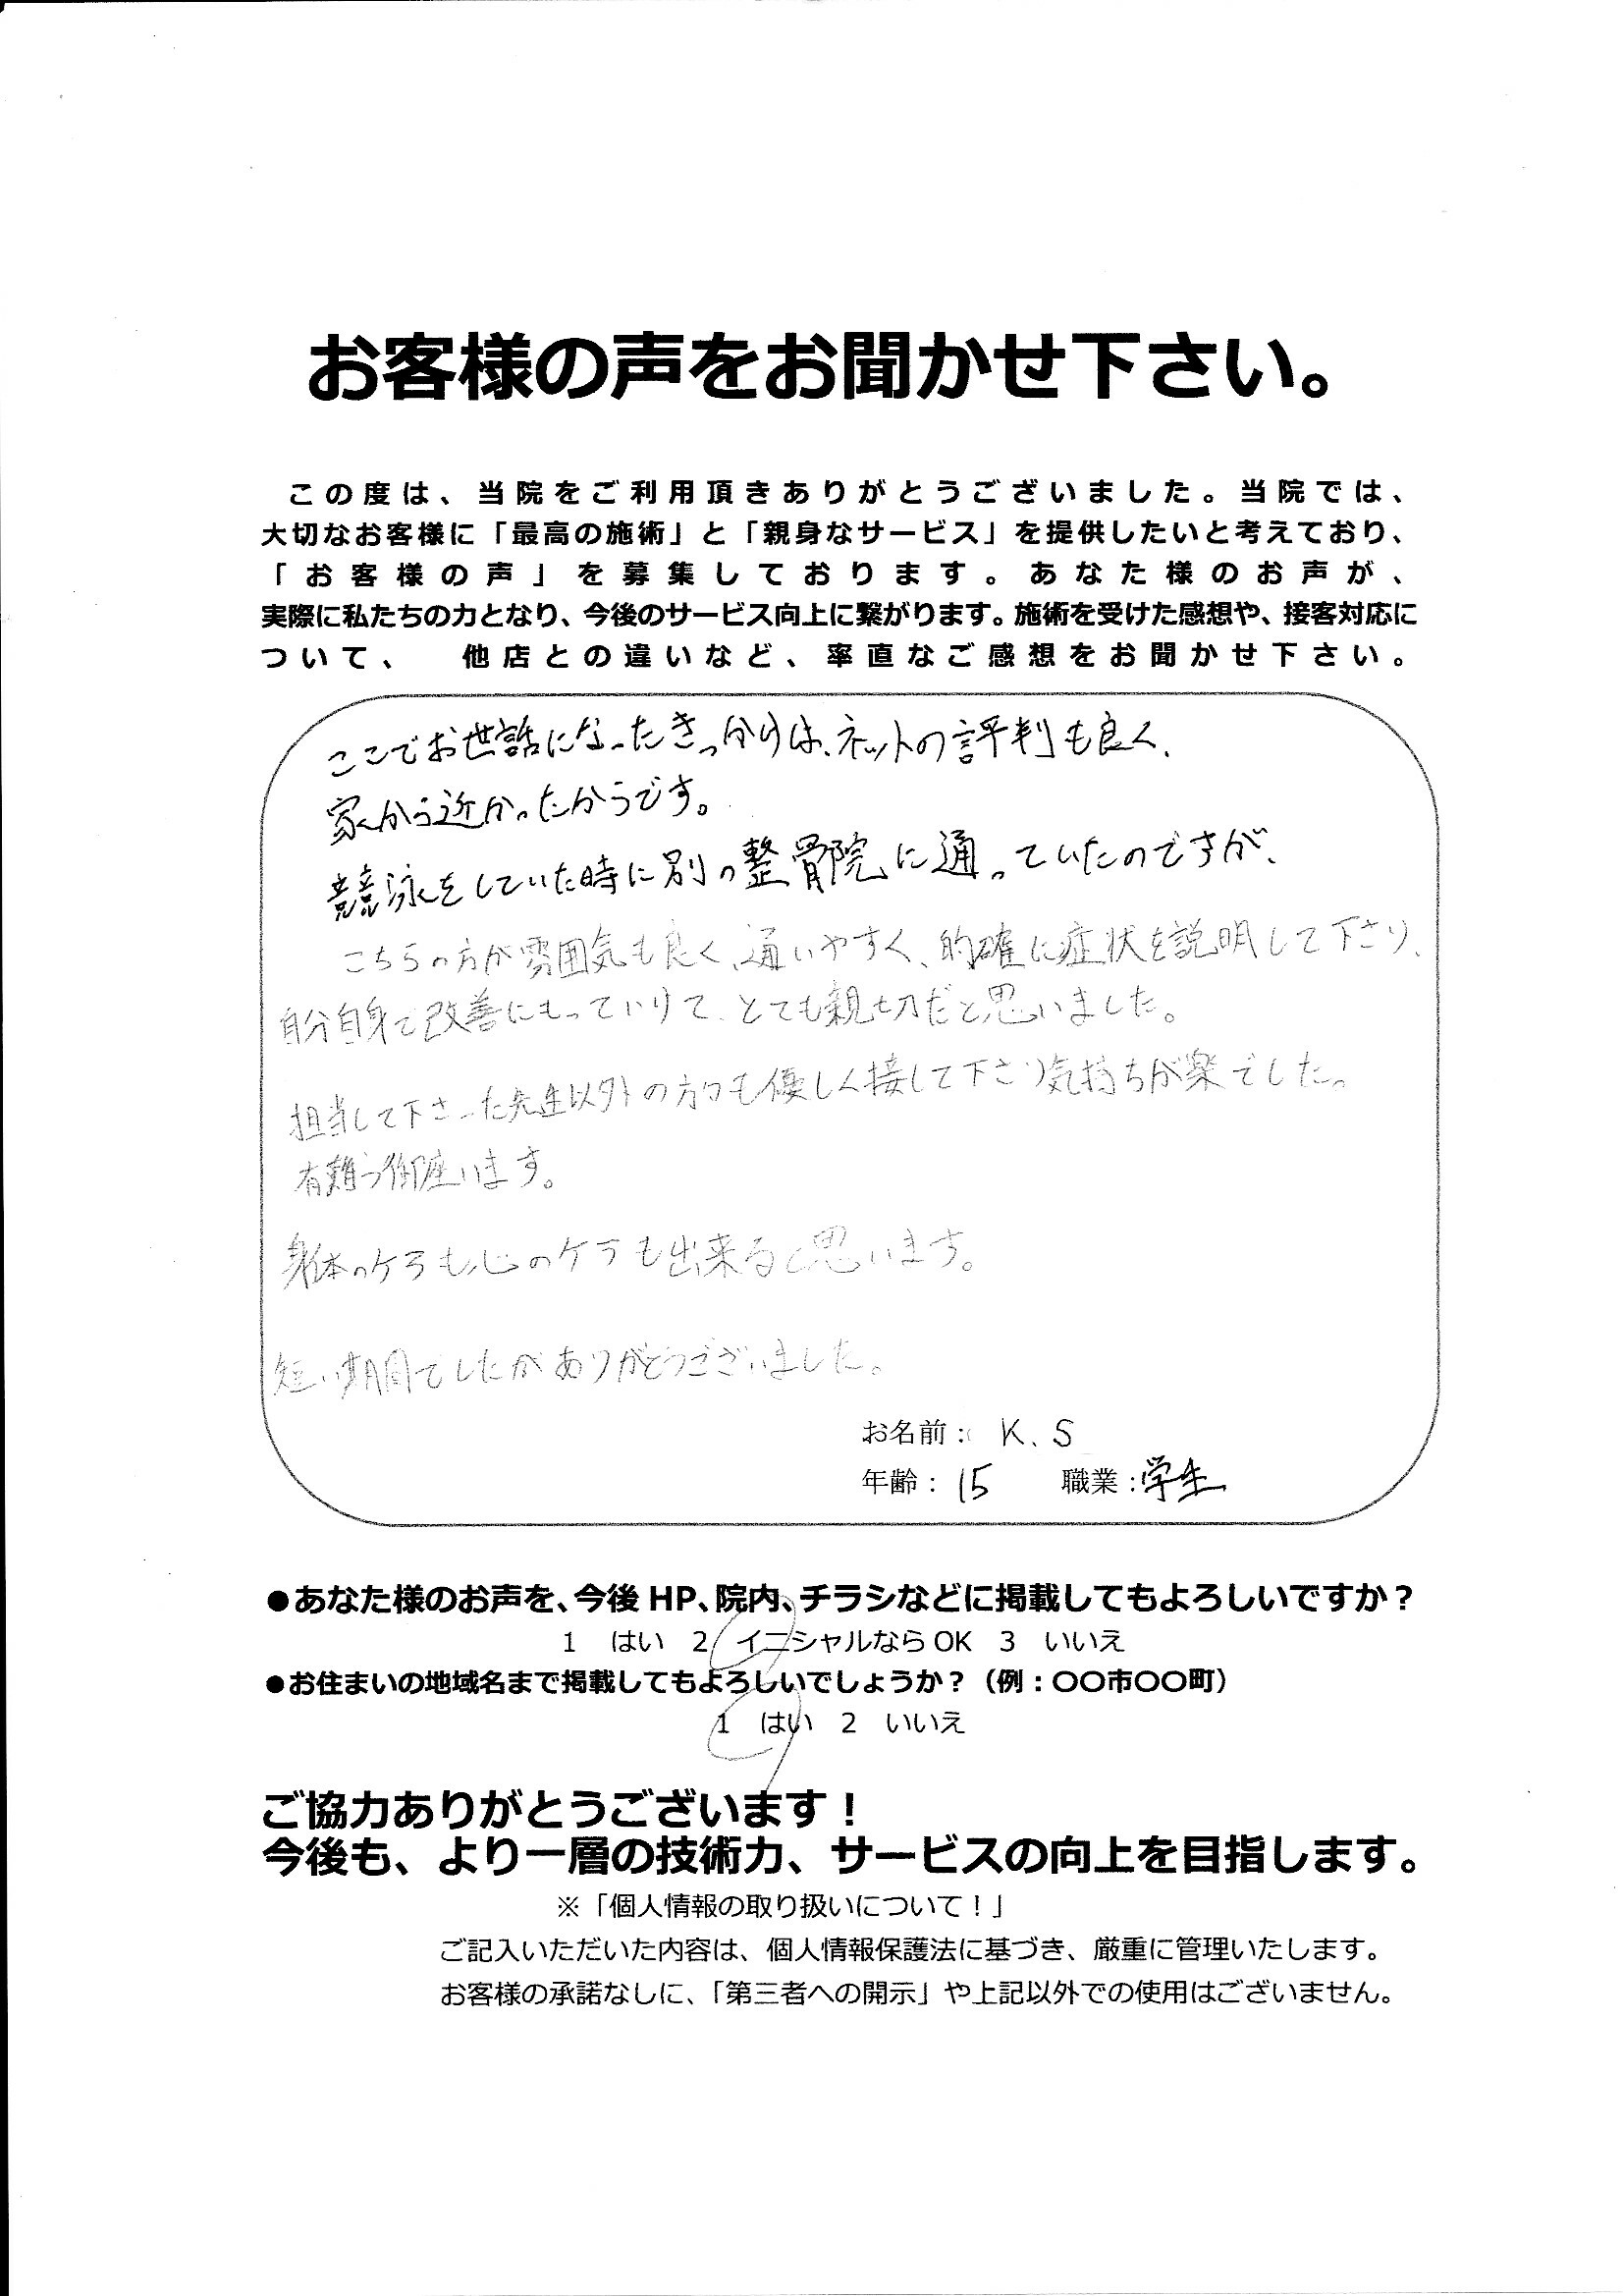 お客様の声をお聞かせ下さい。
この度は、当院をご利用頂きありがとうございました。当院では、
大切なお客様に「最高の施術」と「親身なサービス」を提供したいと考えており、
「お客様の声」を募集しております。あなた様のお声が、
実際に私たちの力となり、今後のサービス向上に繋がります。施術を受けた感想や、接客対応に
ついて、 他店との違いなど、率直なご感想をお聞かせ下さい。
ここでお世話になったきっかけは、ネットの評判も良く、
家から近かったからです。
競泳をしていた時に別の整骨院に通っていたのですが、
こちらの方が雰囲気も良く、通いやすく、的確に症状を説明して下さり、
自分自身で改善にもっていけて、とても親切だと思いました。
担当して下さった先生以外の方々も優しく接して下さり気持ちが楽でした。
有難う御座います。
身体のケアも心のケアも出来ると思います。
短い期間でしたがありがとうございました。
お名前: K.S
年齢: 15 職業:学生
●あなた様のお声を、今後 HP、院内、チラシなどに掲載してもよろしいですか？
1 はい 2 イニシャルなら OK 3 いいえ
●お住まいの地域名まで掲載してもよろしいでしょうか？（例：〇〇市〇〇町）
1 はい 2 いいえ
ご協力ありがとうございます！
今後も、より一層の技術力、サービスの向上を目指します。
※「個人情報の取り扱いについて！」
ご記入いただいた内容は、個人情報保護法に基づき、厳重に管理いたします。
お客様の承諾なしに、「第三者への開示」や上記以外での使用はございません。